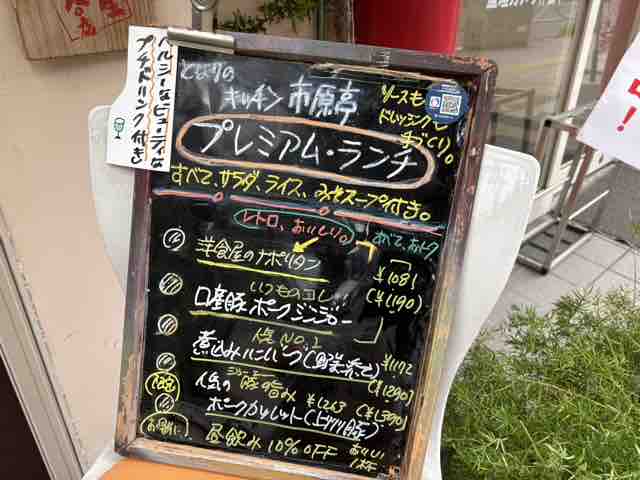 ヘルシー&ビューティな
プチドリンク付き
となりの
キッチン 市原亭
ソースも
ドレッシングも
手づくり。
プレミアム・ランチ
すべて、サラダ、ライス、みそスープ付き。
レトロ、おいしい。
すべて、おトク
洋食屋のナポリタン
¥1081
(¥1190)
いつものコレ!!
国産豚ポークジンジャー
人気 NO.1
煮込みハンバーグ(野菜添え)
¥1172
(¥1290)
人気の
豚の旨み
¥1263
(¥1390)
ポークカツレット(上州豚)
昼飲み 10%OFF
おいしい
1杯
!